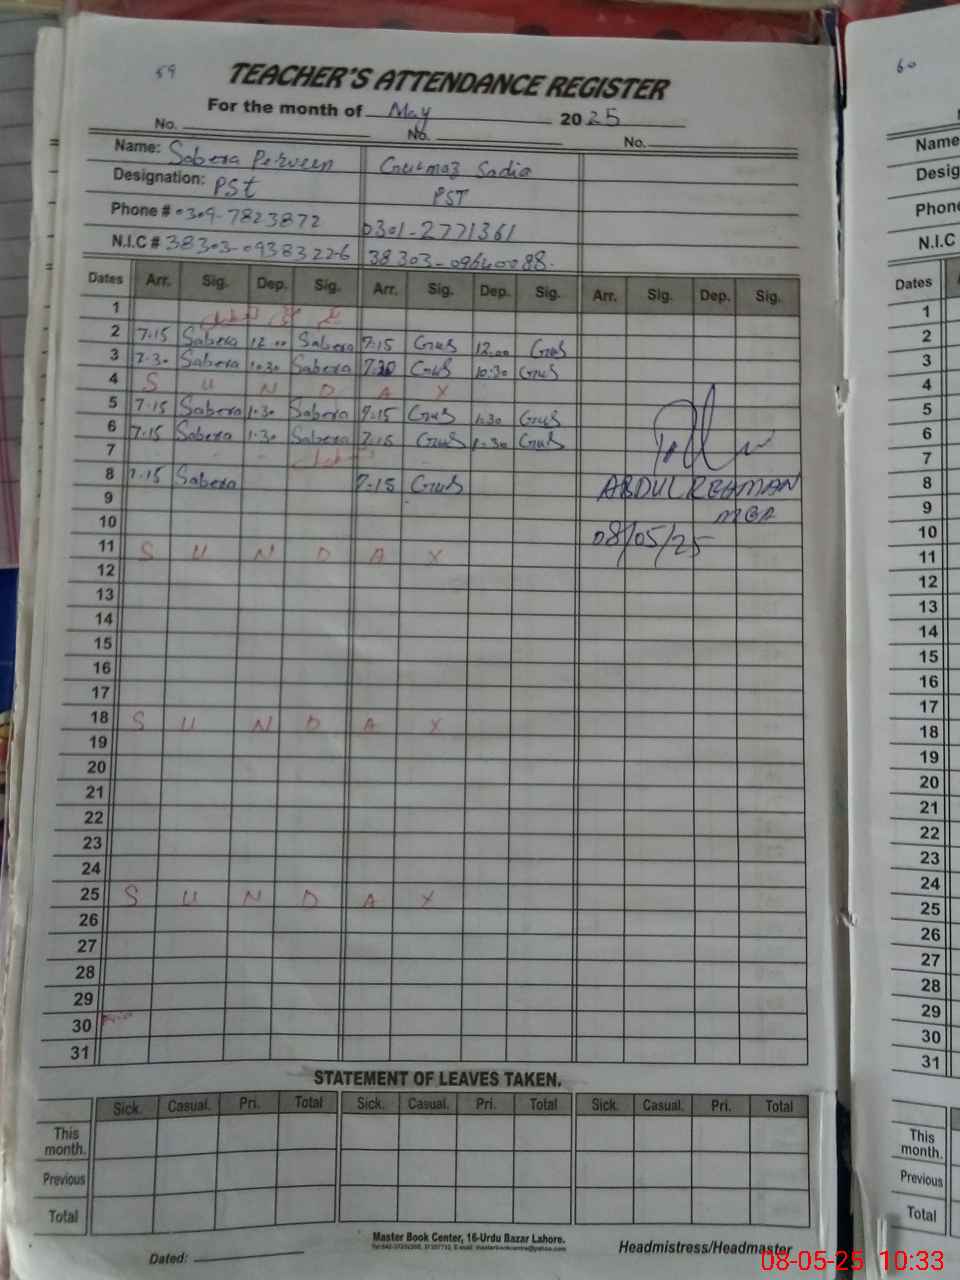 59
TEACHER'S ATTENDANCE REGISTER
For the month of May 2025
No. No. No.
Name: Sabera Perveen Gulmaz Sadia
Designation: PSt PST
Phone # 0309-7823872 0301-2771361
N.I.C # 38303-0938322-6 38303-0964008-8
Dates Arr. Sig. Dep. Sig. Arr. Sig. Dep. Sig. Arr. Sig. Dep. Sig.
1
2 7.15 Sabera 12.00 Sabera 7.15 12.00
3 7.30 Sabera 10.30 Sabera 7.30 10:30
4 S U N D A Y
5 7.15 Sabera 1.30 Sabera 7.15 1.30
6 7.15 Sabera 1.30 Sabera 7.15 1.30
7
8 7.15 Sabera 7.15
ABDUL REHMAN
MEA
9
10
08/05/25
11 S U N D A Y
12
13
14
15
16
17
18 S U N D A Y
19
20
21
22
23
24
25 S U N D A Y
26
27
28
29
30
31
STATEMENT OF LEAVES TAKEN.
Sick. Casual. Pri. Total Sick. Casual. Pri. Total Sick. Casual. Pri. Total
This month.
Previous
Total
Master Book Center, 16-Urdu Bazar Lahore.
Dated: Headmistress/Headmaster
60
Name
Desig
Phon
N.I.C
Dates
1
2
3
4
5
6
7
8
9
10
11
12
13
14
15
16
17
18
19
20
21
22
23
24
25
26
27
28
29
30
31
This month.
Previous
Total
08-05-25 10:33